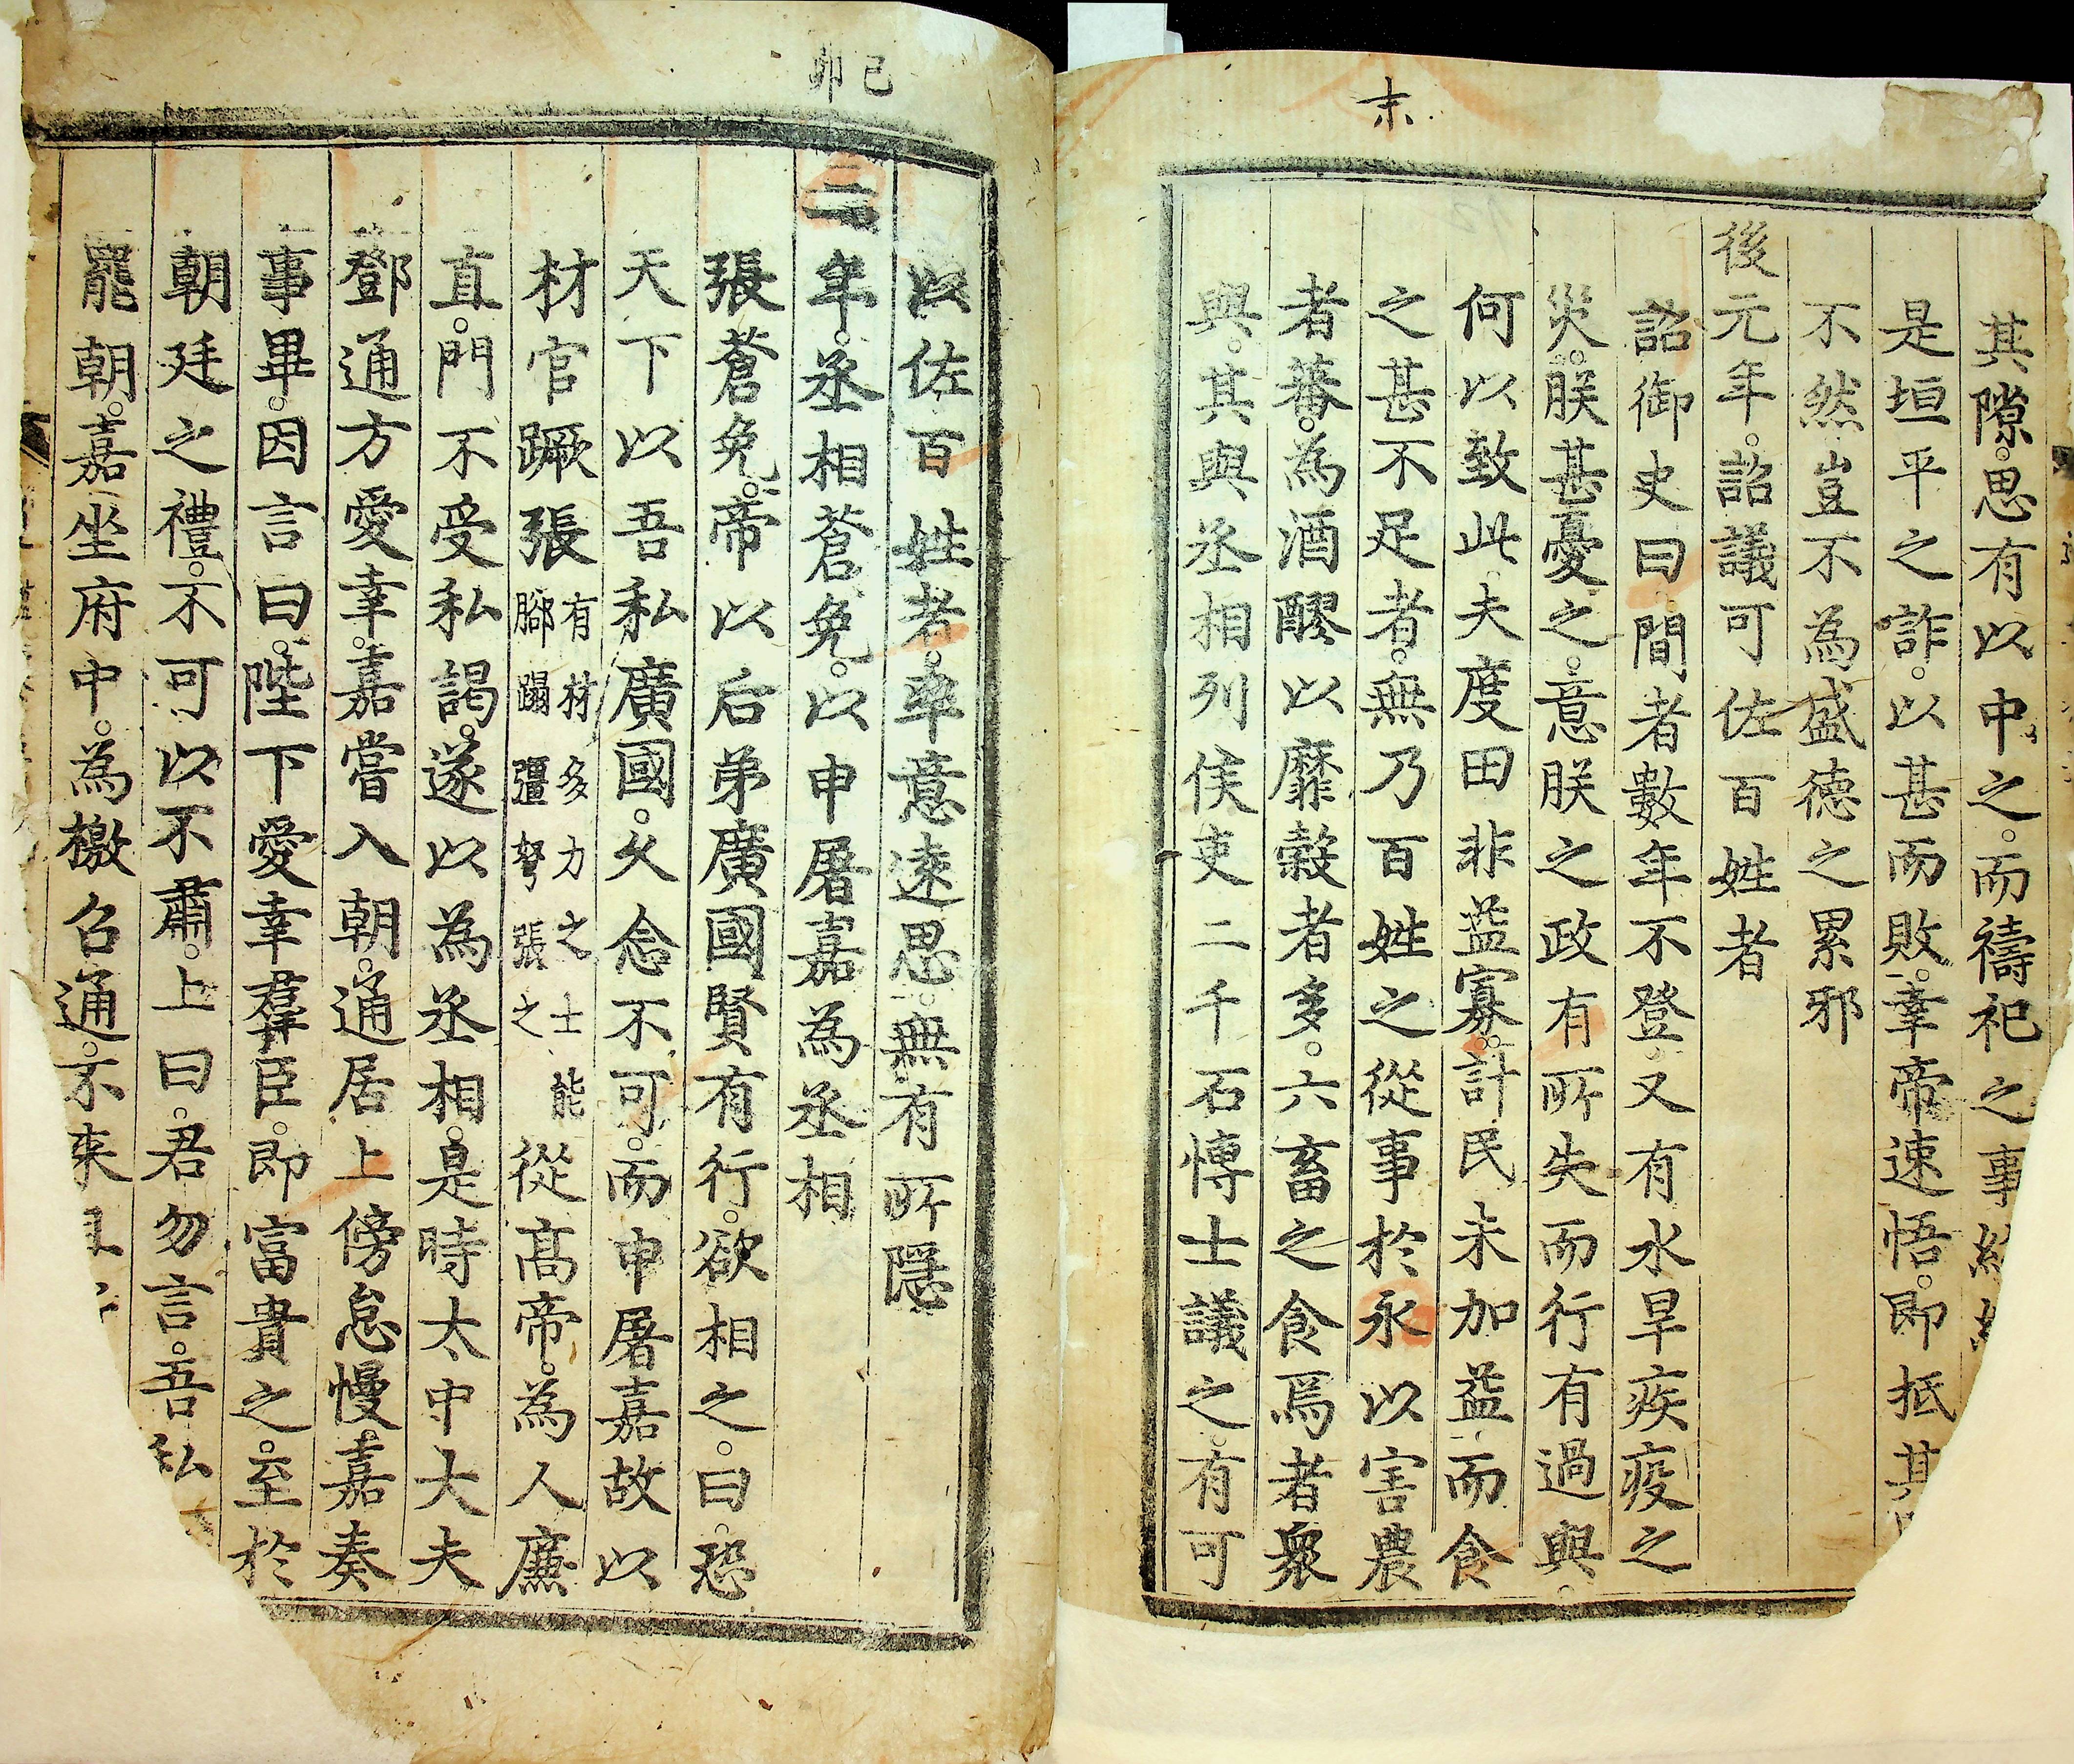 末
其隙思有以中之而禱祀之事
是垣平之詐以甚而敗幸帝速悟即抵其
不然豈不為盛德之累邪
後元年詔議可佐百姓者
詔御史曰間者數年不登又有水旱疾疫之
災朕甚憂之意朕之政有所失而行有過與
何以致此夫度田非益寡計民未加益而食
之甚不足者無乃百姓之從事於永以害農
者蕃為酒醪以靡穀者多六畜之食焉者衆
與其與丞相列侯吏二千石博士議之有可
己卯
以佐百姓者率意遠思無有所隱
二年丞相蒼免以申屠嘉為丞相
張蒼免帝以后弟廣國賢有行欲相之曰恐
天下以吾私廣國久念不可而申屠嘉故以
材官蹶張有材多力之士能腳蹋彊弩張之從高帝為人廉
直門不受私謁遂以為丞相是時太中大夫
鄧通方愛幸嘉嘗入朝通居上傍怠慢嘉奏
事畢因言曰陛下愛幸羣臣即富貴之至於
朝廷之禮不可以不肅上曰君勿言吾私
罷朝嘉坐府中為檄召通不來